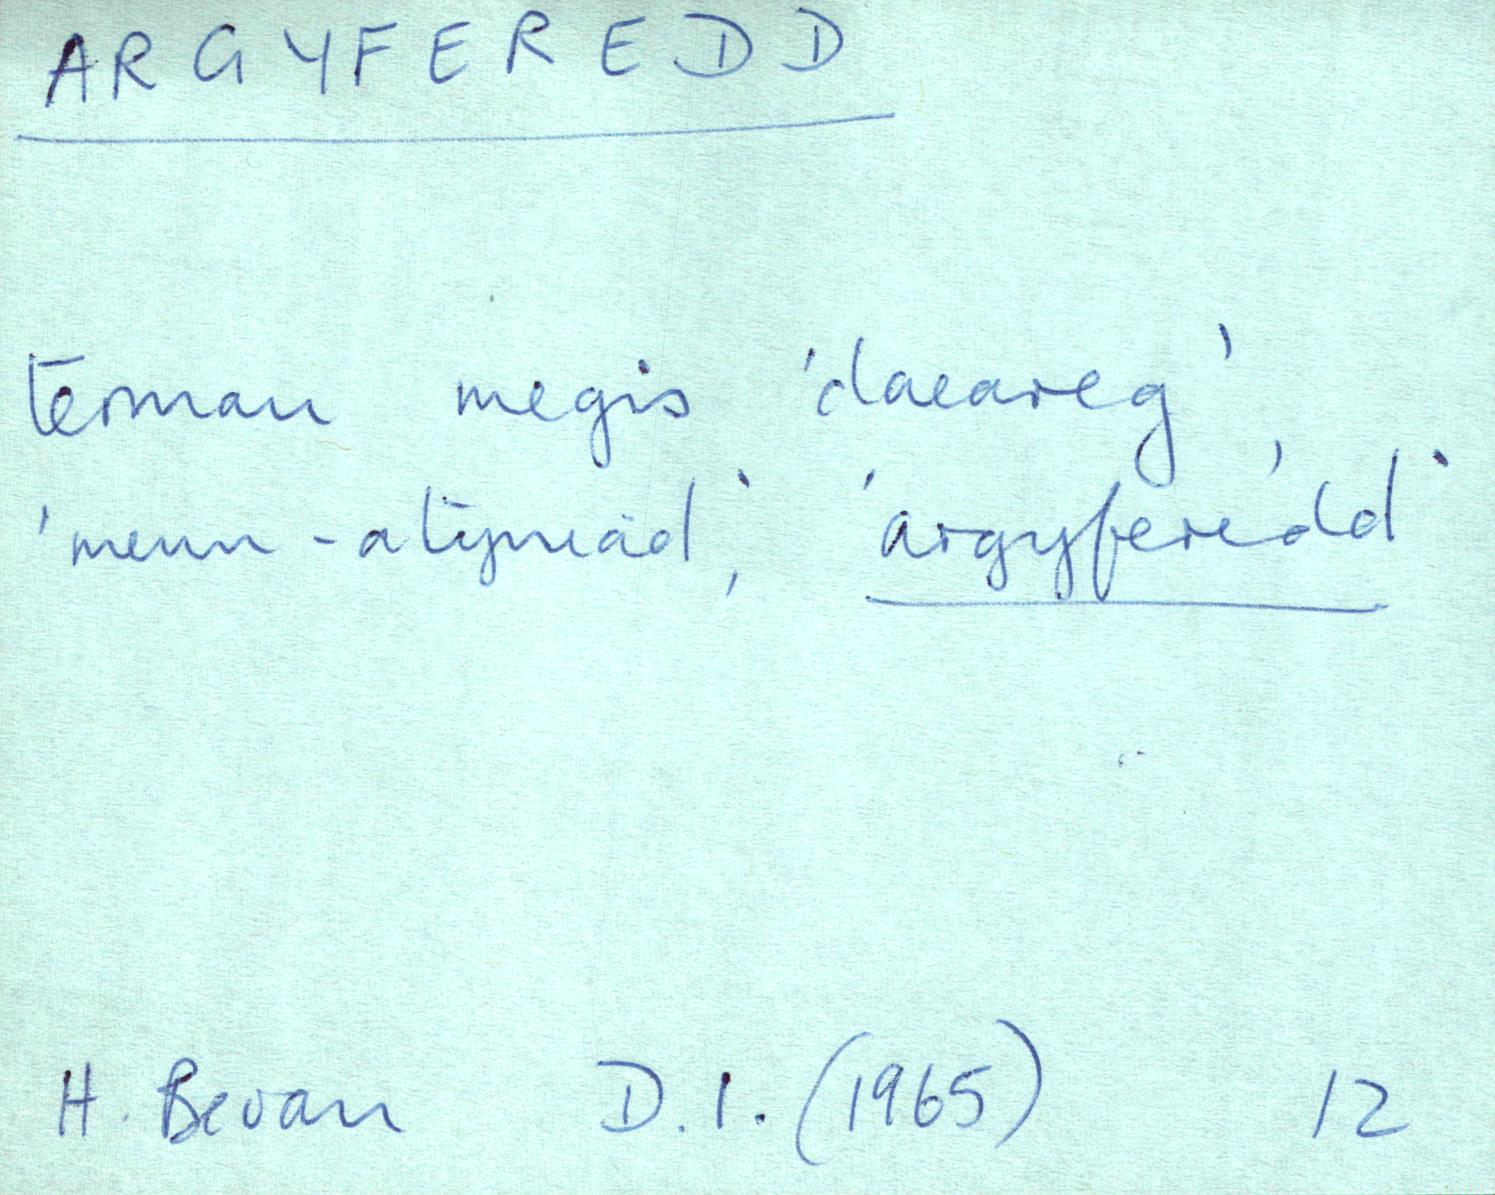 ARGYFEREDD
termau megis 'daeareg',
'mewn-atyniad', 'argyferedd'
H. Bevan D.I. (1965) 12